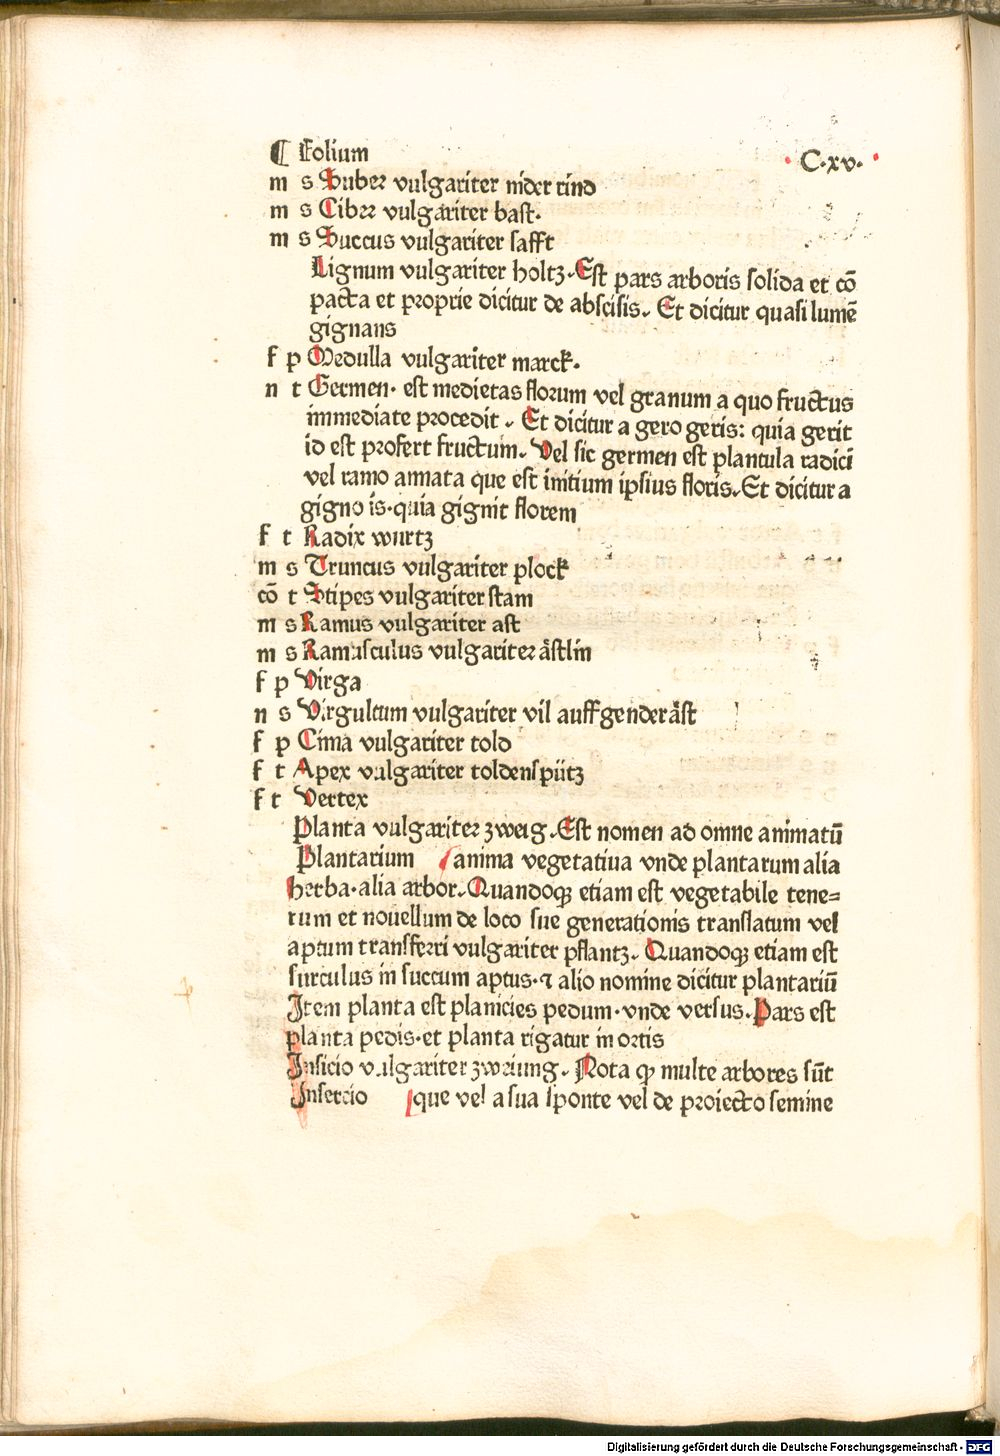 ¶ Folium
·C·xv·
m s Suber vulgariter nider rind
m s Liber vulgariter bast·
m s Succus vulgariter safft
Lignum vulgariter holtz·Est pars arboris solida et cō
pacta et proprie dicitur de abscisis. Et dicitur quasi lumē
gignans
f p Medulla vulgariter marck·
n t Germen· est medietas florum vel granum a quo fructus
immediate procedit. Et dicitur a gero geris: quia gerit
id est profert fructum. Vel sic germen est plantula radici
vel ramo annata que est initium ipsius floris. Et dicitur a
gigno is·quia gignit florem
f t Radix wurtz
m s Truncus vulgariter plock
cō t Stipes vulgariter stam
m s Ramus vulgariter ast
m s Ramusculus vulgariter ästlin
f p Virga
n s Virgultum vulgariter vil auffgender äst
f p Cima vulgariter told
f t Apex vulgariter toldenspitz
f t Vertex
Planta vulgariter zweig. Est nomen ad omne animatū
Plantarium anima vegetatiua vnde plantarum alia
herba·alia arbor. Quandoqꝫ etiam est vegetabile tene=
rum et nouellum de loco sue generationis translatum vel
aptum transferri vulgariter pflantz. Quandoqꝫ etiam est
surculus in succum aptus·⁊ alio nomine dicitur plantariū
Item planta est planicies pedum·vnde versus. Pars est
planta pedis·et planta rigatur in ortis
Insicio vulgariter zwiung. Nota ꝙ multe arbores sūt
Insercio que vel a sua sponte vel de proiecto semine
Digitalisierung gefördert durch die Deutsche Forschungsgemeinschaft - DFG